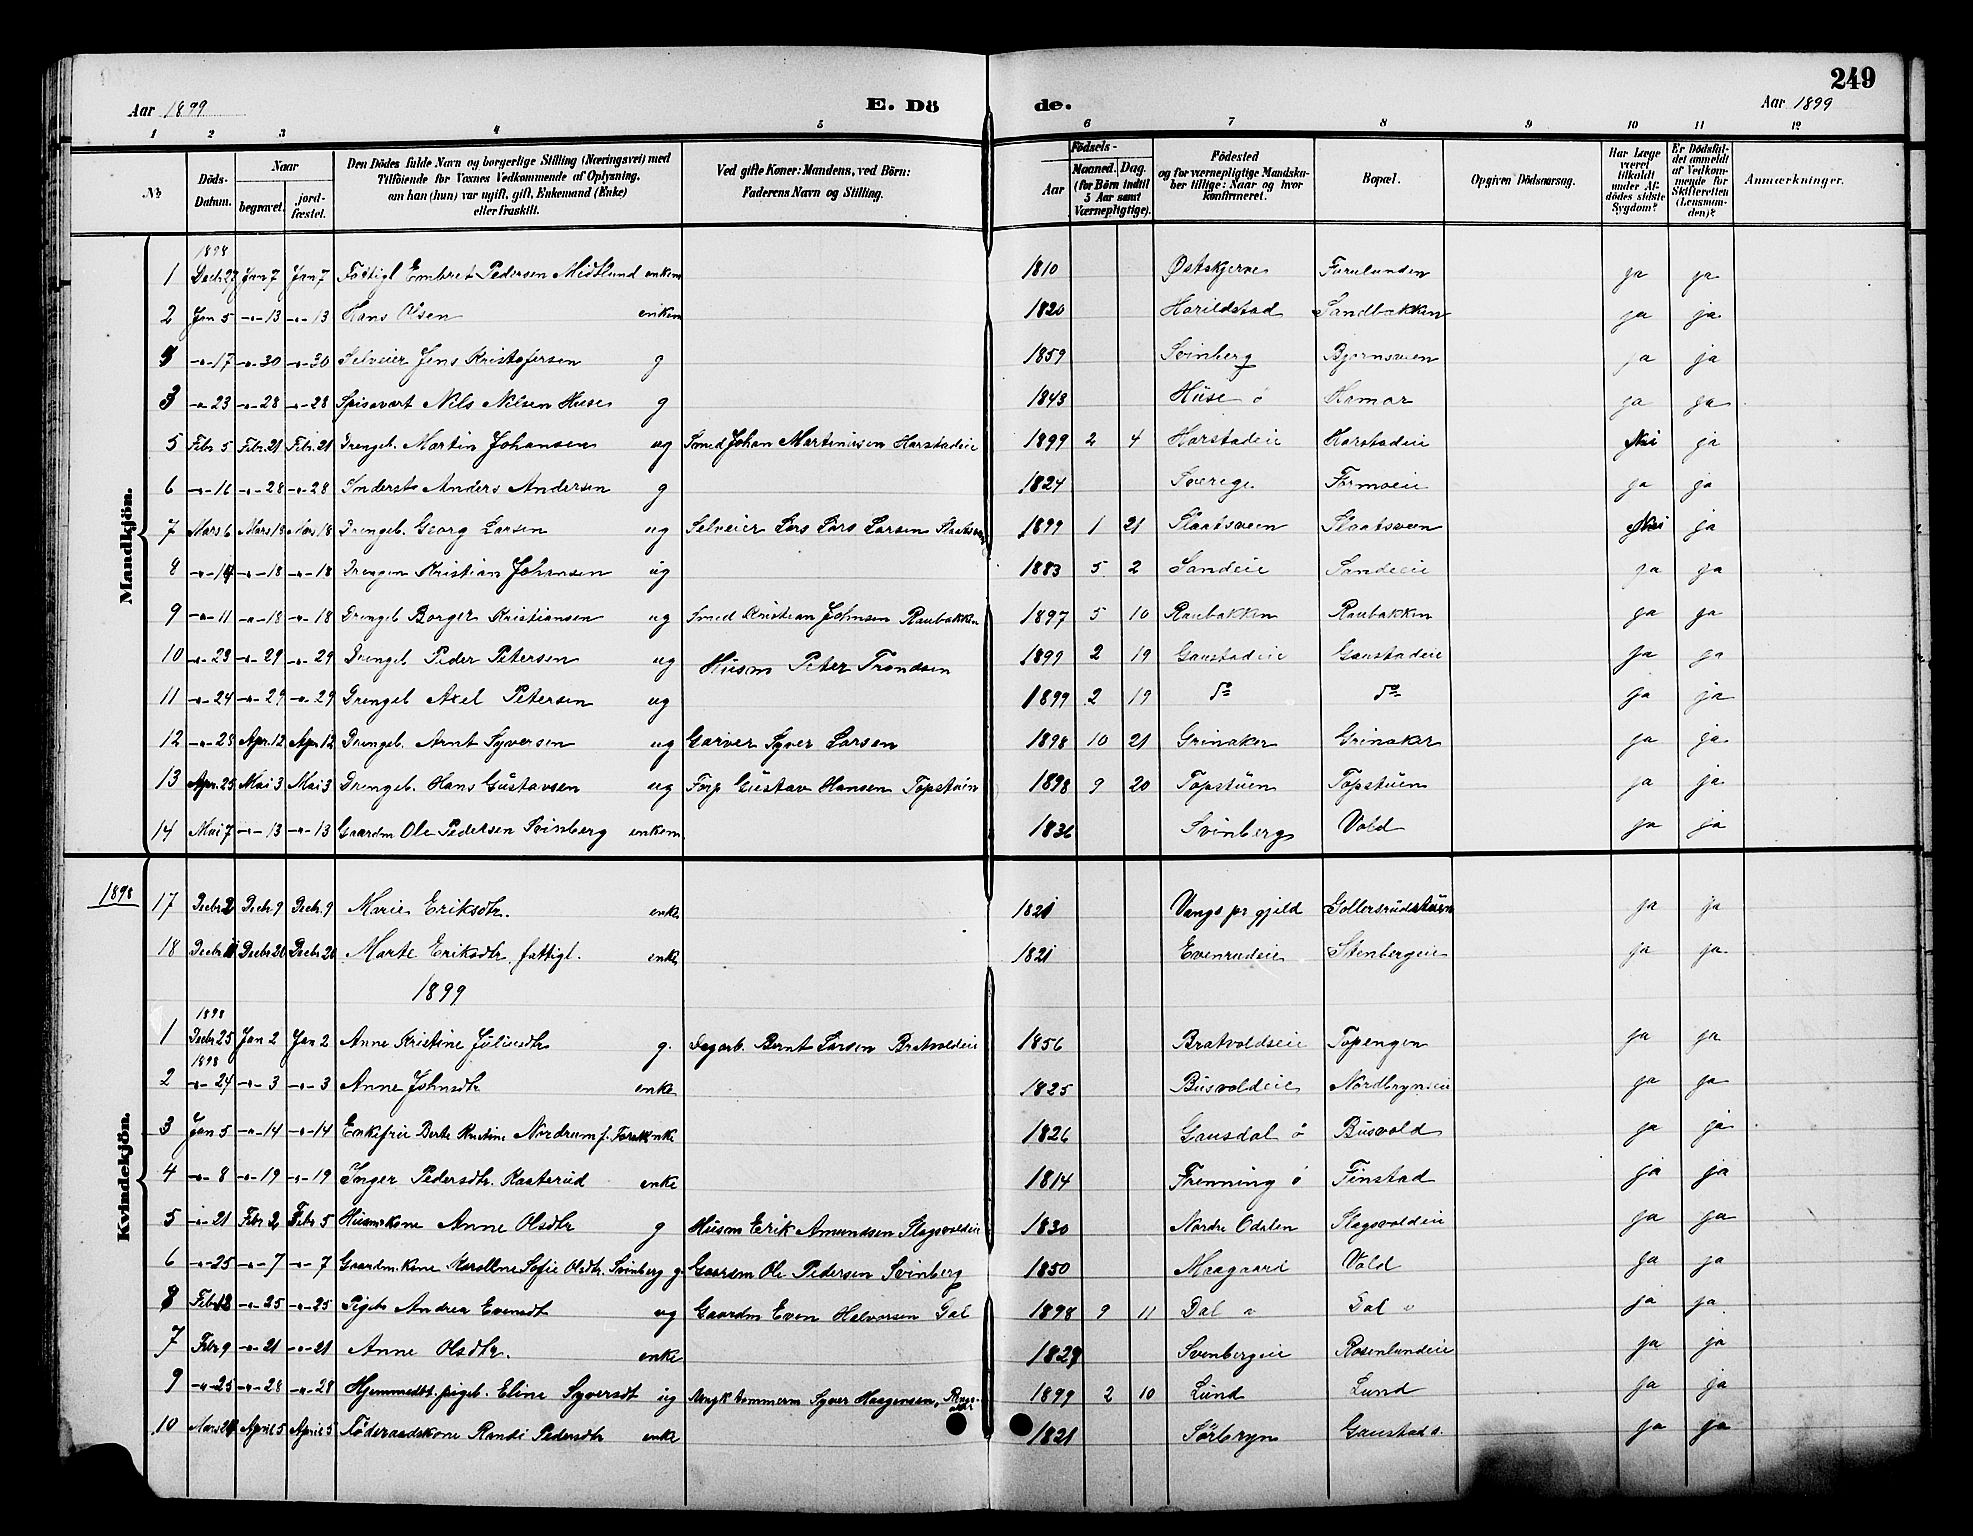 249
Aar 1899 E. Dö de. Aar 1899
1 2 3 4 5 6 7 8 9 10 11 12
№ Döds-Datum. Naar begravet. jord-fæstet. Den Dödes fulde Navn og borgerlige Stilling (Næringsvei) med Tilföiende for Voxnes Vedkommende af Oplysning, om han (hun) var ugift, gift, Enkemand (Enke) eller fraskilt. Ved gifte Koner: Mandens, ved Börn: Faderens Navn og Stilling. Födsels- Aar Maaned. Dag. (for Börn indtil 5 Aar samt Værnepligtige). Födested og for værnepligtige Mandskaber tillige: Naar og hvor konfirmeret. Bopæl. Opgiven Dödsaarsag. Har Læge været tilkaldt under Afdödes sidste Sygdom? Er Dödsfaldet anmeldt af Vedkommende for Skifteretten (Lensmanden)? Anmærkninger.
Mandkjön.
1898
1 Decbr 27 Jan 7 Jan 7 Fattigl Embret Pedersen Midtlund enkem 1810 Østskjerve Furulunden ja ja
2 Jan 5 -"- 13 -"- 13 Hans Olsen enkem 1820 Harildstad Sandbakken ja ja
-"- 17 -"- 30 -"- 30 Selveier Jens Kristofersen g 1859 Svinberg Bjørnsveen ja ja
3 -"- 23 -"- 28 -"- 28 Spisevært Nils Nilsen Huse g 1843 Huse ö Hamar ja ja
5 Febr 5 Febr. 21 Febr. 21 Drengeb. Martin Johansen ug Smed Johan Martinusen Harstadeie 1899 2 4 Harstadeie Harstadeie Nei ja
6 -"- 16 -"- 28 -"- 28 Inderst Anders Andersen g 1824 Sverige Formoeie ja ja
7 Mars 6 Mars 18 Mars 18 Drengeb. Georg Larsen ug Selveier Lars Lars Larsen 1899 1 21 Slaatsveen Slaatsveen Nei ja
8 -"- 14 -"- 18 -"- 18 Drengen Kristian Johansen ug 1883 5 2 Sandeie Sandeeie ja ja
9 -"- 11 -"- 18 -"- 18 Drengeb Borger Kristiansen ug Smed Kristian Johnsen Raubakken 1897 5 10 Raubakken Raubakken ja ja
10 -"- 23 -"- 29 -"- 29 Drengeb. Peder Petersen ug Husm Peter Trondsen 1899 2 19 Gaustadeie Gaustadeie ja ja
11 -"- 24 -"- 29 -"- 29 Drengeb Axel Petersen ug 1899 2 19 do do ja ja
12 -"- 28 Apr. 12 Apr 12 Drengeb. Arnt Syversen ug Garver Syver Larsen 1898 10 21 Grinaker Grinaker ja ja
13 Apr. 25 Mai 3 Mai 3 Drengeb. Hans Gustavsen ug Forp Gustav Hansen Topstuen 1898 9 20 Topstuen Topstuen ja ja
14 Mai 7 -"- 13 -"- 13 Gaardm Ole Pedersen Svinberg enkem 1836 Svinberg Vold ja ja
Kvindekjön.
1898
17 Decbr 2 Decbr. 9 Decbr. 9 Marie Eriksdtr. enke 1821 Vangs pr gjeld Gollersrudstuen ja ja
18 Decbr 11 Decbr 20 Decbr 20 Marte Eriksdtr fattigl. enke 1821 Evenrudeie Stenbergeie ja ja
1899
1898
1 Decbr 25 Jan 2 Jan 2 Anne Kristine Juliusdtr g. Dagarb. Bernt Larsen Bratvoldeie 1856 Bratvoldseie Topengen ja ja
1898
2 -"- 24 -"- 3 -"- 3 Anne Johnsdtr enke 1825 Busvoldeie Nordbryneie ja ja
3 Jan 5 -"- 14 -"- 14 Enkefrue Berte Kristine Nordrum enke 1826 Gausdal ö Busvold ja ja
4 -"- 8 -"- 19 -"- 19 Inger Pedersdtr. Kasterud enke 1814 Frenning ö Finstad ja ja
5 -"- 21 Febr 2 Febr 5 Husmskone Anne Olsdtr g Husm Erik Amundsen Slagsvoldeie 1830 Nordre Odalen Slagsvoldeie ja ja
6 -"- 25 -"- 7 -"- 7 Gaardm.kone Karoline Sofie Olsdtr. Svinberg g Gaardm Ole Pedersen Svinberg 1850 Maagaard Vold ja ja
8 Febr 12 -"- 25 -"- 25 Pigeb Andrea Evensdtr ug Gaardm Even Halvorsen Dal 1898 9 11 Dal " Dal " ja ja
7 Febr 9 -"- 21 -"- 21 Anne Olsdtr. enke 1829 Svenbergeie Rosenlundeie ja ja
9 -"- 25 -"- 28 -"- 28 Hjemmedbt. pigeb. Eline Syversdtr ug Syver Haagensen, 1899 2 10 Lund Lund ja ja
10 Mars 24 April 5 April 5 Föderaadskone Randi Pedersdtr enke 1821 Sörbryn Gaustad s. ja ja